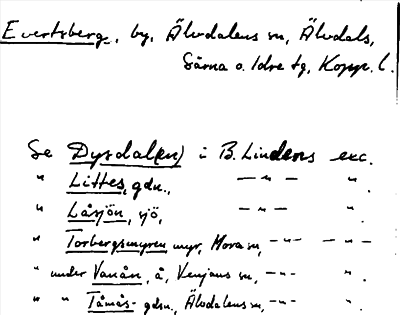 Evertsberg, by, Älvdalens sn, Älvdals,
Särna o. Idre tg, Kopp. l.
Se Dysdal(en) i B. Lindens exc.
" Littes, gdn., — " — ".
" Låsjön, sjö, — " — ".
" Torbergsmyren myr, Mora sn, -"- — " —
" under Vanån, å, Venjans sn, -"- ".
" " Tåmås- gdn., Älvdalens sn, -"- ".